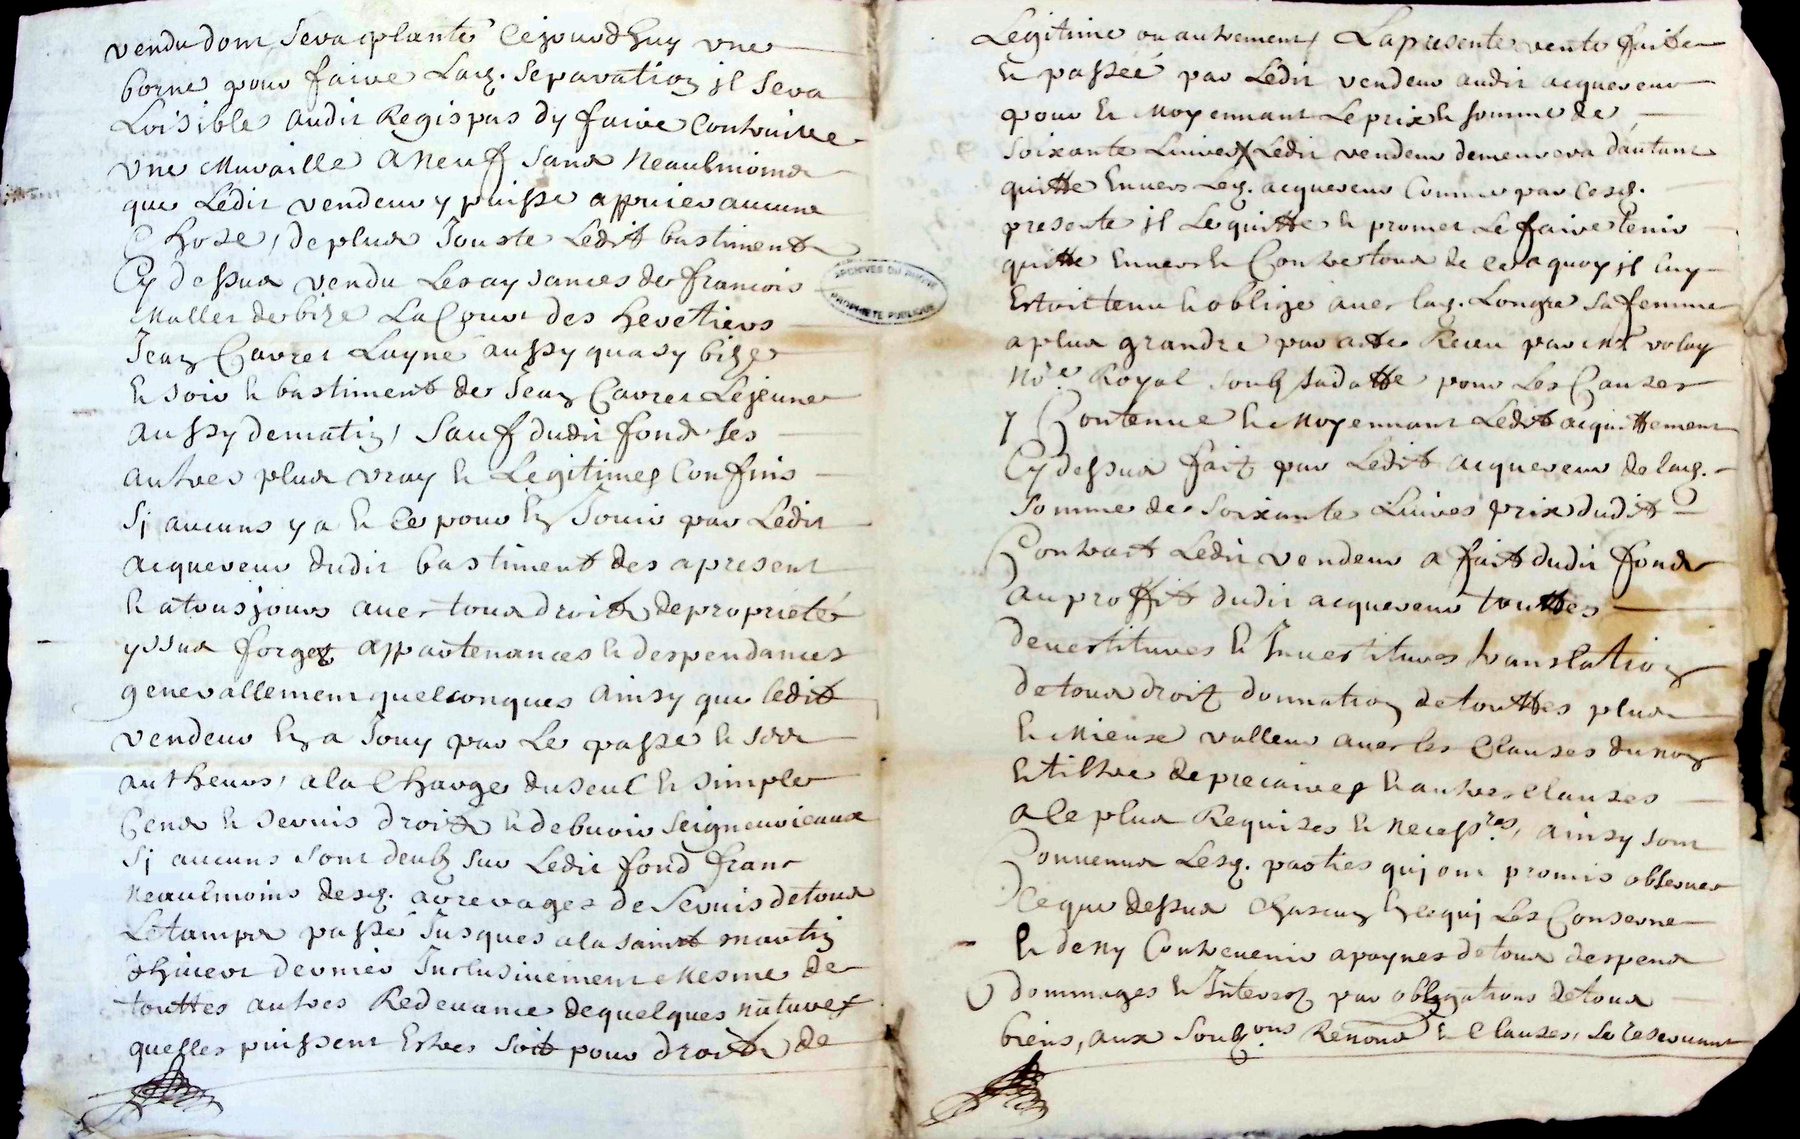 vendu dont sera planté Cejourd'huy une
borne pour faire Lad. separation il sera
Loisible audit Regis pas d'y faire Contruire
une Muraille a Neuf sans Neaulmoins
que Ledit vendeur y puisse appuier aucune
Chose, de plus Jouste Ledit bastiment
Cy dessus vendu Les aysances de francois
Maller de bize La Cour des heretiers
Jean Cavrer Layne aussy quasy bize
Et soir Et bastiment de Jean Cavrer Lejeune
aussy dematin, sauf dudit fond ses
autres plus vray Et Legitimes Confins
si aucuns y a Et Ce pour En Jouir par Ledit
acquereur dudit bastiment des apresent
Et a tousjours avec tous droits de proprieté
yssus forges appartenances Et despendances
generallement quelconques ainsy que ledit
vendeur En a Jouy par Le passé Et ses
autheurs, a la Charge du seul Et simple
Cens Et servis droits Et debvoir seigneurieaux
si aucuns sont deubs sur Ledit fond franc
Neaulmoins desd. arrerages de servis de tous
Le tamps passé Jusques a la saint martin
d'hiver dernier Inclusivement Mesme de
touttes autres Redevance de quelques natures
quelles puissent Estres soit pour droits de
ARCHIVES DU
PROPRIETE PUBLIQUE
Legitime ou autrement, La presente vente faite
Et passée par Ledit vendeur audit acquereur
pour Et Moyennant Le prix Et somme de
soixante Livres Ledit vendeur demeurera d'autant
quitte Envers Led. acquereur Comme par Cesd.
presente il Le quitte Et promet Le faire tenir
quitte Envers Et Contre tous de Ce a quoy il luy
Estoit tenu Et oblige avec lad. Longre sa femme
a plus grande par acte Receu par Me volay
No.re Royal soub sa datte pour Les Causes
y Contenue Et Moyennant Ledit acquittement
Cy dessus fait par Ledit acquereur de lad.
somme de soixante Livres prix dudit
Contract Ledit vendeur a fait dudit fond
au proffit dudit acquereur touttes
devestitures Et Investitures translation
de tous droit donnation de touttes plus
Et Mieux valleur avec les Clauses du nom
Et tiltre de precaires Et autres Clauses
a Ce plus Requises Et Necess.res, ainsy sont
Convenus Lesd. parties qui ont promis observer
Ce que dessus Chascun En Ce qui Les Conserne
Et de ny Contrevenir a paynes de tous despens
Dommages Et Interest par obligations de tous
biens, aux soub.ons Renons Et Clauses, se reservant